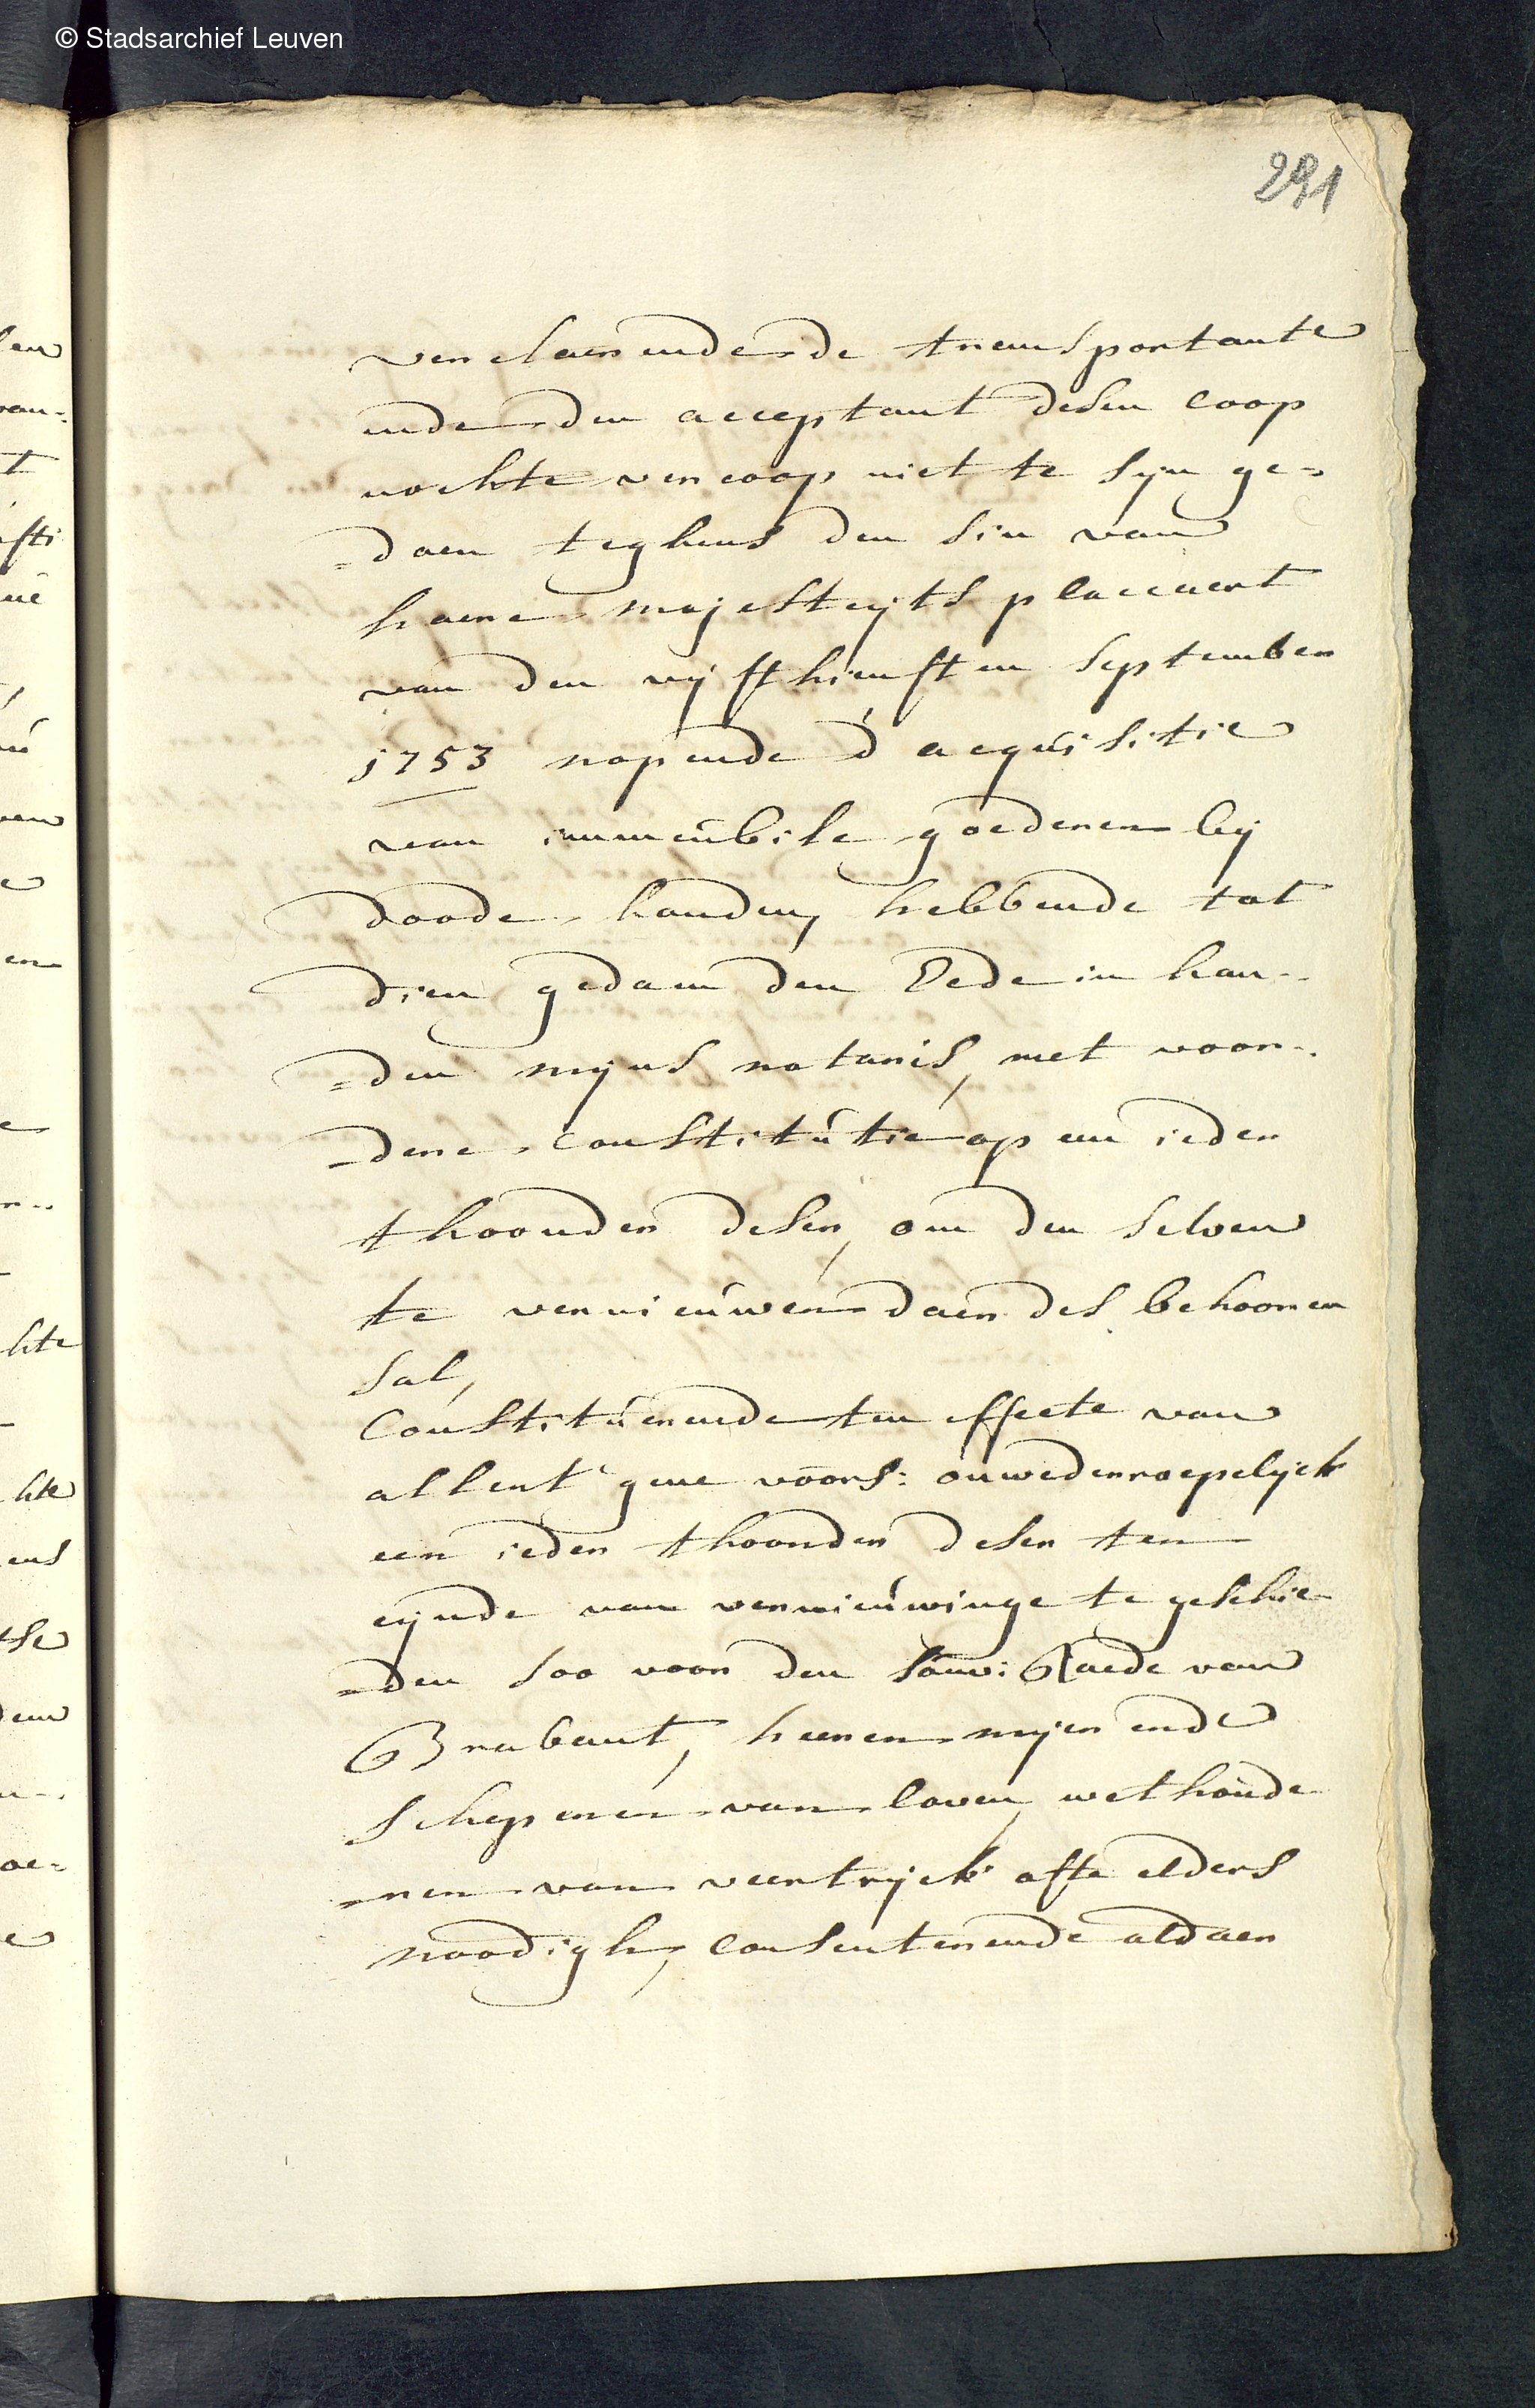 © Stadsarchief Leuven
291
verclaerende de transportante
ende den acceptant desen coop
nochte vercoop niet te syn ge=
=daen teghens den sin van
haere majesteyts placcaert
van den vyfthiensten september
1753 rapende d'acquisitie
van immeubile goederen by
doode handen, hebbende tot
dien gedaen den Eede in han=
=den myns notaris, met voor=
=dere constitutie op een ieder
thoonder deser, om den selven
te vernieuwen daer des behooren
sal,
Constituerende ten effecte van
allent'gene voors: onwederroepelyck
een ieder thoonder deser ten
eynde van vernieuwinge te geschie
=den soo voor den souv: Raede van
Brabant, heeren myer ende
schepenen van loven, wethoude
=ren van veertryck ofte elders
noodigh, consenterende aldaer